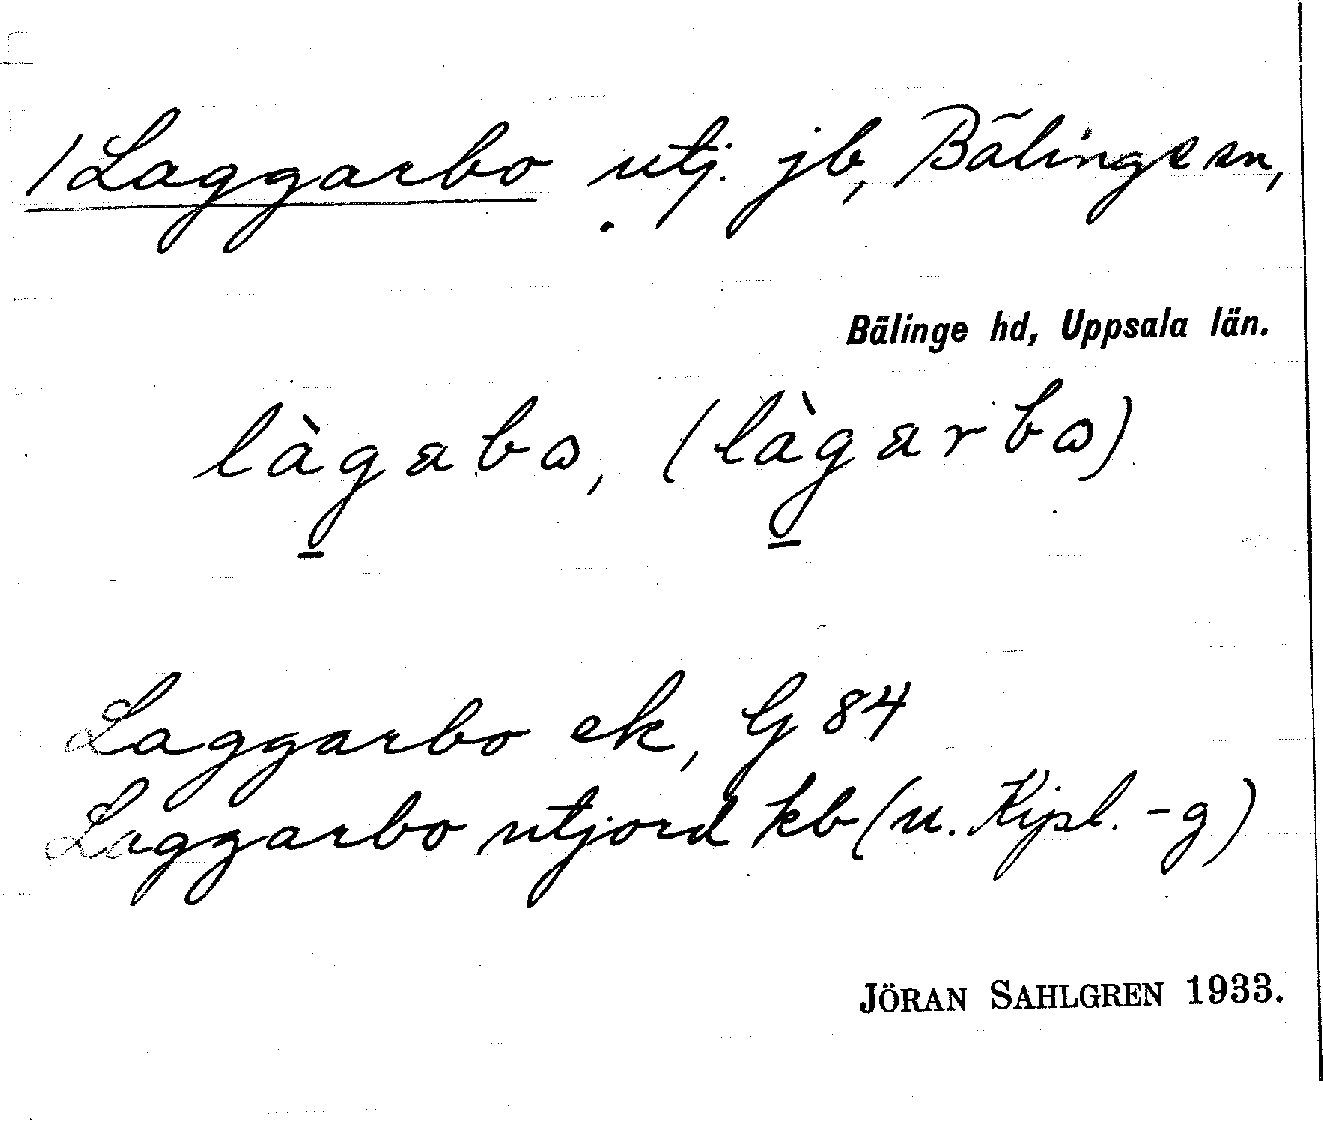 /Laggarbo utj. jb, Bälinge sn,
Bälinge hd, Uppsala län.
làg̲abo, (làg̲arbo)
Laggarbo ek, G 84
Laggarbo utjord kb (u. Kipl. -g)
JÖRAN SAHLGREN 1933.